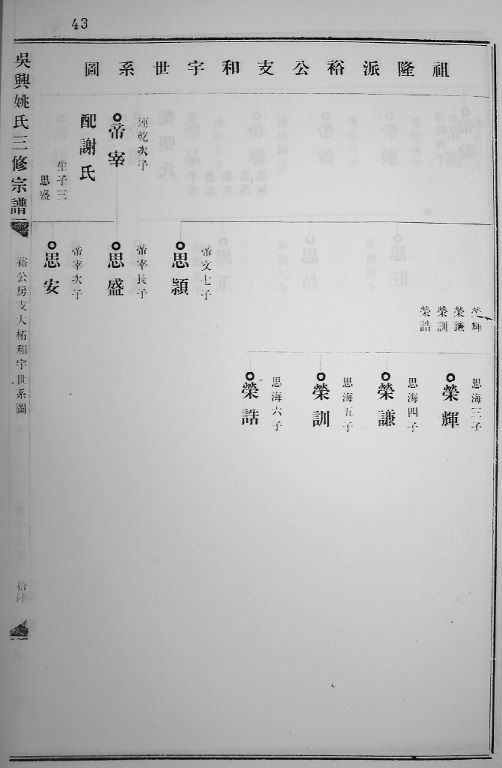 43
祖隆派裕公支和宇世系圖
運乾次子
帝宰
配謝氏
生子三
思盛
帝文七子
思穎
帝宰長子
思盛
帝宰次子
思安
榮輝
榮謙
榮訓
榮誥
思海三子
榮輝
思海四子
榮謙
思海五子
榮訓
思海六子
榮誥
吳興姚氏三修宗譜
裕公房支大柘和宇世系圖